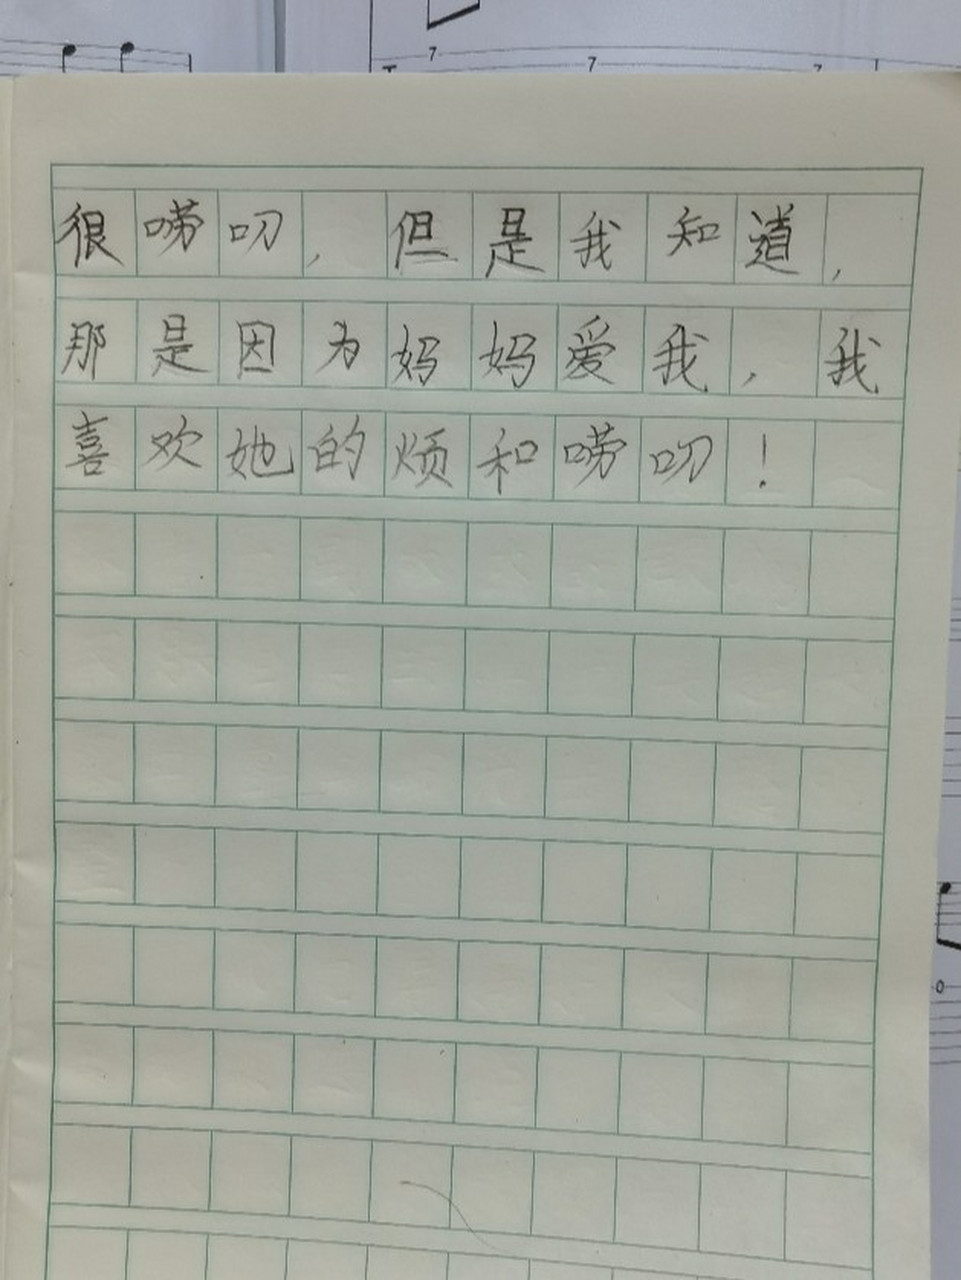 7 7 7
很唠叨，但是我知道，
那是因为妈妈爱我，我
喜欢她的烦和唠叨！
0